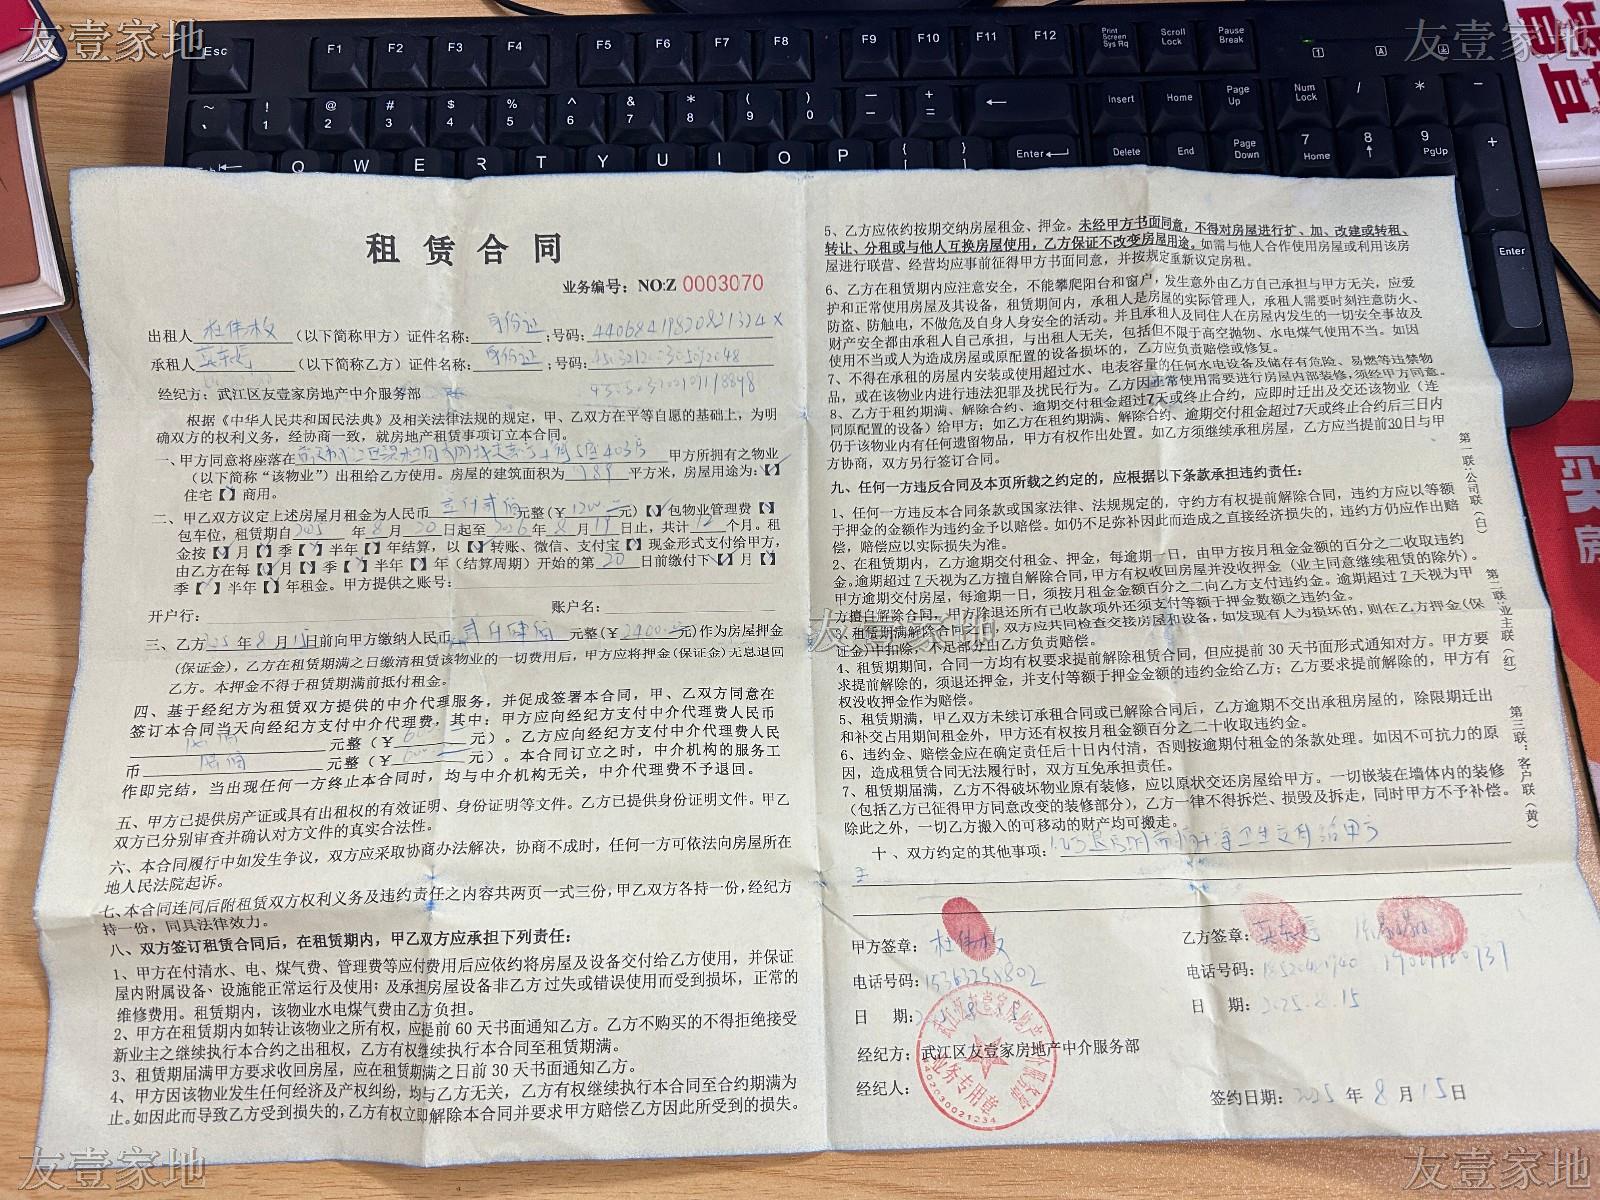 友壹家地
友壹家地
租赁合同
业务编号：NO:Z 0003070
出租人 杜伟枚 （以下简称甲方）证件名称：身份证；号码：44068419820821324X
承租人 （以下简称乙方）证件名称：身份证；号码：
经纪方：武江区友壹家房地产中介服务部
根据《中华人民共和国民法典》及相关法律法规的规定，甲、乙双方在平等自愿的基础上，为明
确双方的权利义务，经协商一致，就房地产租赁事项订立本合同。
一、甲方同意将座落在 403房 甲方所拥有之物业
（以下简称“该物业”）出租给乙方使用。房屋的建筑面积为 平方米，房屋用途为：【】
住宅【】商用。
二、甲乙双方议定上述房屋月租金为人民币 元整（￥1200元）【】包物业管理费【】
包车位，租赁期自2025年8月20日起至2026年8月19日止，共计12个月。租
金按【】月【】季【】半年【】年结算，以【】转账、微信、支付宝【】现金形式支付给甲方，
由乙方在每【】月【】季【】半年【】年（结算周期）开始的第20日前缴付下【】月【】
季【】半年【】年租金。甲方提供之账号：
开户行： 账户名：
三、乙方25年8月15日前向甲方缴纳人民币 贰仟肆佰 元整（￥2400元）作为房屋押金
（保证金），乙方在租赁期满之日缴清租赁该物业的一切费用后，甲方应将押金(保证金)无息退回
乙方。本押金不得于租赁期满前抵付租金。
四、基于经纪方为租赁双方提供的中介代理服务，并促成签署本合同，甲、乙双方同意在
签订本合同当天向经纪方支付中介代理费，其中：甲方应向经纪方支付中介代理费人民币
陆佰 元整（￥600元）。乙方应向经纪方支付中介代理费人民
币 陆佰 元整（￥600元）。本合同订立之时，中介机构的服务工
作即完结，当出现任何一方终止本合同时，均与中介机构无关，中介代理费不予退回。
五、甲方已提供房产证或具有出租权的有效证明、身份证明等文件。乙方已提供身份证明文件。甲乙
双方已分别审查并确认对方文件的真实合法性。
六、本合同履行中如发生争议，双方应采取协商办法解决，协商不成时，任何一方可依法向房屋所在
地人民法院起诉。
七、本合同连同后附租赁双方权利义务及违约责任之内容共两页一式三份，甲乙双方各持一份，经纪方
持一份，同具法律效力。
八、双方签订租赁合同后，在租赁期内，甲乙双方应承担下列责任：
1、甲方在付清水、电、煤气费、管理费等应付费用后应依约将房屋及设备交付给乙方使用，并保证
屋内附属设备、设施能正常运行及使用；及承担房屋设备非乙方过失或错误使用而受到损坏，正常的
维修费用。租赁期内，该物业水电煤气费由乙方负担。
2、甲方在租赁期内如转让该物业之所有权，应提前60天书面通知乙方。乙方不购买的不得拒绝接受
新业主之继续执行本合约之出租权，乙方有权继续执行本合同至租赁期满。
3、租赁期届满甲方要求收回房屋，应在租赁期满之日前30天书面通知乙方。
4、甲方因该物业发生任何经济及产权纠纷，均与乙方无关，乙方有权继续执行本合同至合约期满为
止。如因此而导致乙方受到损失的，乙方有权立即解除本合同并要求甲方赔偿乙方因此所受到的损失。
5、乙方应依约按期交纳房屋租金、押金。未经甲方书面同意，不得对房屋进行扩、加、改建或转租、
转让、分租或与他人互换房屋使用，乙方保证不改变房屋用途。如需与他人合作使用房屋或利用该房
屋进行联营、经营均应事前征得甲方书面同意，并按规定重新议定房租。
6、乙方在租赁期内应注意安全，不能攀爬阳台和窗户，发生意外由乙方自己承担与甲方无关，应爱
护和正常使用房屋及其设备，租赁期间内，承租人是房屋的实际管理人，承租人需要时刻注意防火、
防盗、防触电，不做危及自身人身安全的活动。并且承租人及同住人在房屋内发生的一切安全事故及
财产安全都由承租人自己承担，与出租人无关，包括但不限于高空抛物、水电煤气使用不当。如因
使用不当或人为造成房屋或原配置的设备损坏的，乙方应负责赔偿或修复。
7、不得在承租的房屋内安装或使用超过水、电表容量的任何水电设备及储存有危险、易燃等违禁物
品，或在该物业内进行违法犯罪及扰民行为。乙方因正常使用需要进行房屋内部装修，须经甲方同意。
8、乙方于租约期满、解除合约、逾期交付租金超过7天或终止合约，应即时迁出及交还该物业（连
同原配置的设备）给甲方；如乙方在租约期满、解除合约、逾期交付租金超过7天或终止合约后三日内
仍于该物业内有任何遗留物品，甲方有权作出处置。如乙方须继续承租房屋，乙方应当提前30日与甲
方协商，双方另行签订合同。
九、任何一方违反合同及本页所载之约定的，应根据以下条款承担违约责任：
1、任何一方违反本合同条款或国家法律、法规规定的，守约方有权提前解除合同，违约方应以等额
于押金的金额作为违约金予以赔偿。如仍不足弥补因此而造成之直接经济损失的，违约方仍应作出赔
偿，赔偿应以实际损失为准。
2、在租赁期内，乙方逾期交付租金、押金，每逾期一日，由甲方按月租金金额的百分之二收取违约
金。逾期超过7天视为乙方擅自解除合同，甲方有权收回房屋并没收押金（业主同意继续租赁的除外）。
甲方逾期交付房屋，每逾期一日，须按月租金金额百分之二向乙方支付违约金。逾期超过7天视为甲
方擅自解除合同，甲方除退还所有已收款项外还须支付等额于押金数额之违约金。
3、租赁期满解除合同之日，双方应共同检查交接房屋和设备，如发现有人为损坏的，则在乙方押金(保
证金)中扣除，不足部分由乙方负责赔偿。
4、租赁期期间，合同一方均有权要求提前解除租赁合同，但应提前30天书面形式通知对方。甲方要
求提前解除的，须退还押金，并支付等额于押金金额的违约金给乙方；乙方要求提前解除的，甲方有
权没收押金作为赔偿。
5、租赁期满，甲乙双方未续订承租合同或已解除合同后，乙方逾期不交出承租房屋的，除限期迁出
和补交占用期间租金外，甲方还有权按月租金额百分之二十收取违约金。
6、违约金、赔偿金应在确定责任后十日内付清，否则按逾期付租金的条款处理。如因不可抗力的原
因，造成租赁合同无法履行时，双方互免承担责任。
7、租赁期届满，乙方不得破坏物业原有装修，应以原状交还房屋给甲方。一切嵌装在墙体内的装修
（包括乙方已征得甲方同意改变的装修部分），乙方一律不得拆烂、损毁及拆走，同时甲方不予补偿。
除此之外，一切乙方搬入的可移动的财产均可搬走。
十、双方约定的其他事项： 卫生交付给甲方
甲方签章：杜伟枚
电话号码：15363258802
日 期：
经纪方：武江区友壹家房地产中介服务部
经纪人：
乙方签章：
电话号码：
日 期：2025.8.15
签约日期：2025年8月15日
武江区友壹家房地产中介服务部
业务专用章
4402030021234
第一联：公司联（白）
第二联：业主联（红）
第三联：客户联（黄）
友壹家地
友壹家地
友壹家地
Esc F1 F2 F3 F4 F5 F6 F7 F8 F9 F10 F11 F12 Print Screen Sys Rq Scroll Lock Pause Break
~ ! 1 @ 2 # 3 $ 4 % 5 ^ 6 & 7 * 8 ( 9 ) 0 — + = Insert Home Page Up Num Lock / * −
Q W E R T Y U I O P { [ } ] Enter Delete End Page Down 7 Home 8 9 PgUp +
Enter
买
房